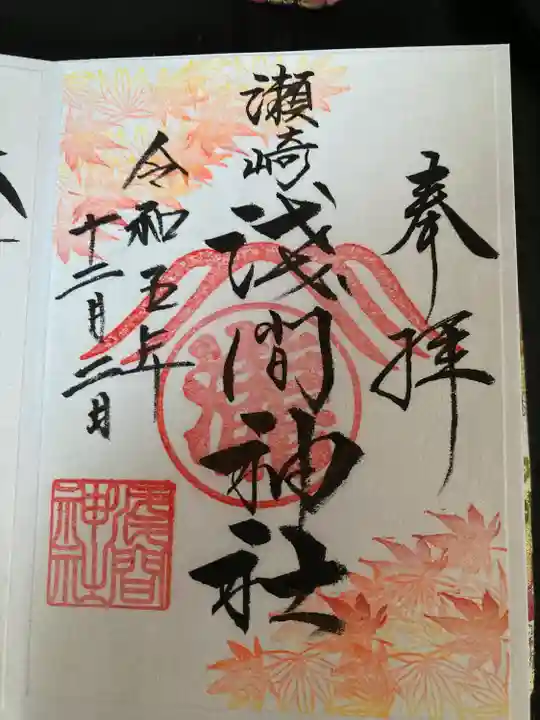 奉拝
瀬崎
浅間神社
令和五年
十二月二日
浅間神社